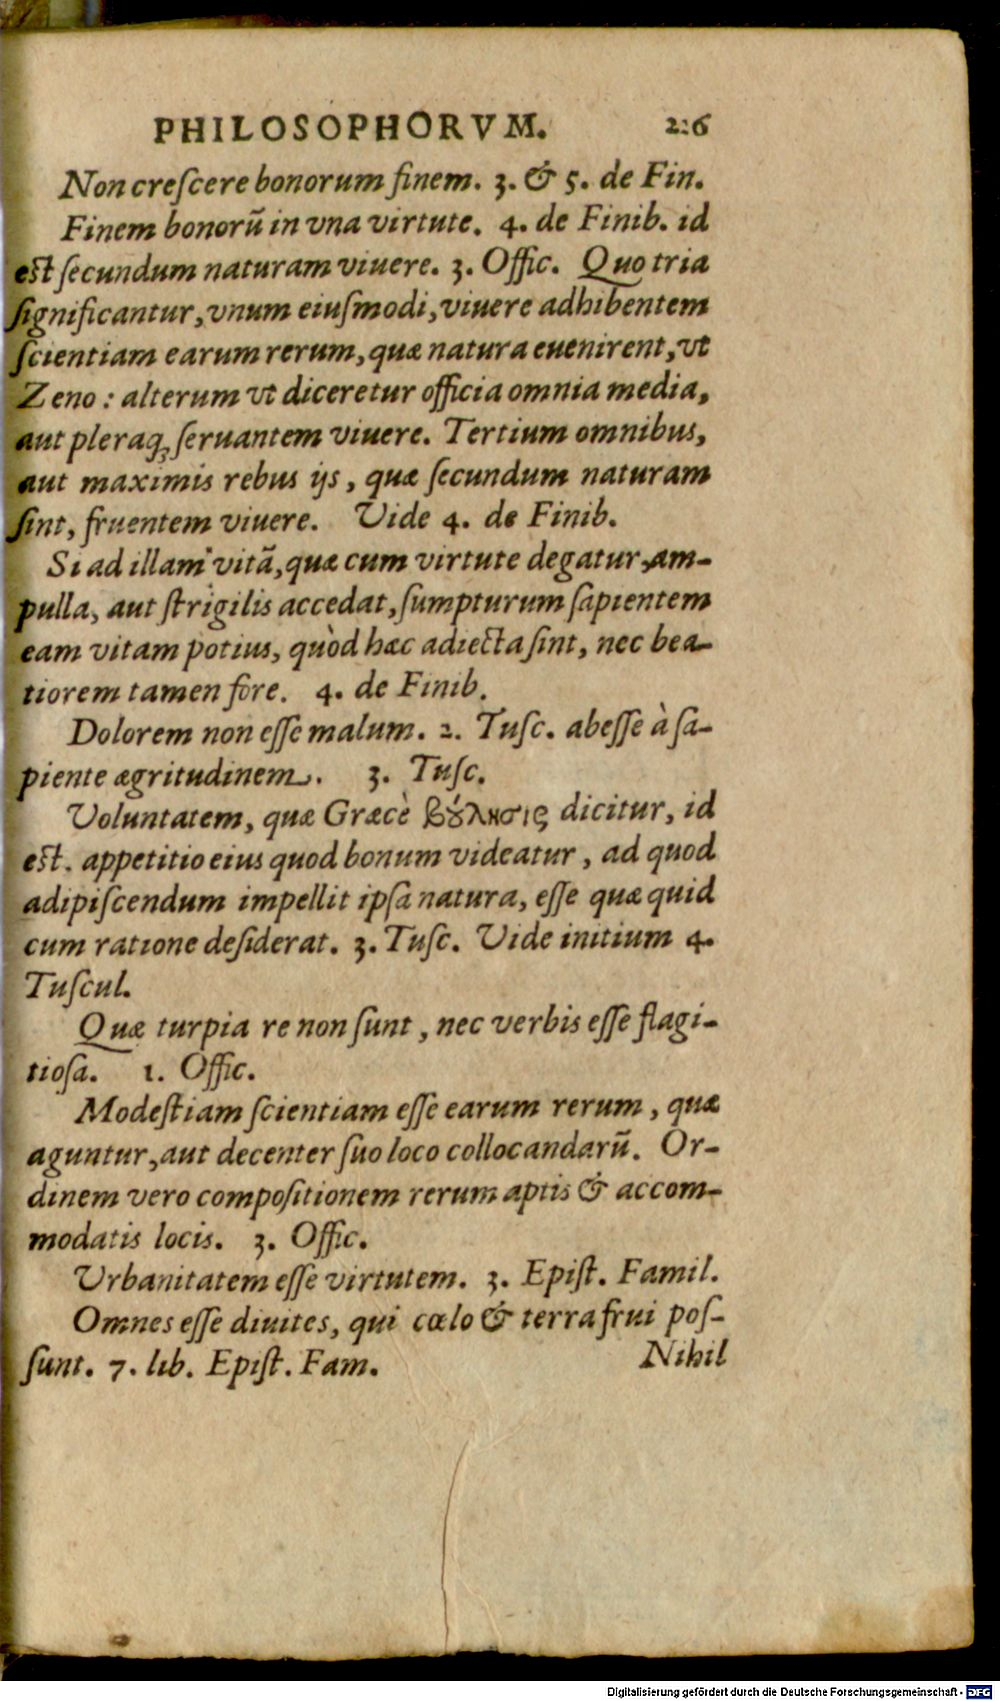 PHILOSOPHORVM. 226
Non creſcere bonorum finem. 3. & 5. de Fin.
Finem bonorũ in vna virtute. 4. de Finib. id
est ſecundum naturam viuere. 3. Offic. Quo tria
ſignificantur, vnum eiuſmodi, viuere adhibentem
ſcientiam earum rerum, quæ natura euenirent, vt
Zeno: alterum vt diceretur officia omnia media,
aut pleraq; ſeruantem viuere. Tertium omnibus,
aut maximis rebus ijs, quæ ſecundum naturam
ſint, fruentem viuere. Vide 4. de Finib.
Si ad illam vitã, quæ cum virtute degatur, am-
pulla, aut ſtrigilis accedat, ſumpturum ſapientem
eam vitam potius, quòd hæc adiecta ſint, nec bea-
tiorem tamen fore. 4. de Finib.
Dolorem non eſſe malum. 2. Tuſc. abeſſe à ſa-
piente ægritudinem. 3. Tuſc.
Voluntatem, quæ Græcè βȣ́λησις dicitur, id
est. appetitio eius quod bonum videatur, ad quod
adipiſcendum impellit ipſa natura, eſſe quæ quid
cum ratione deſiderat. 3. Tuſc. Vide initium 4.
Tuſcul.
Quæ turpia re non ſunt, nec verbis eſſe flagi-
tioſa. 1. Offic.
Modeſtiam ſcientiam eſſe earum rerum, quæ
aguntur, aut decenter ſuo loco collocandarũ. Or-
dinem vero compoſitionem rerum aptis & accom-
modatis locis. 3. Offic.
Vrbanitatem eſſe virtutem. 3. Epiſt. Famil.
Omnes eſſe diuites, qui cœlo & terra frui poſ-
ſunt. 7. lib. Epiſt. Fam.
Nihil
Digitalisierung gefördert durch die Deutsche Forschungsgemeinschaft - DFG